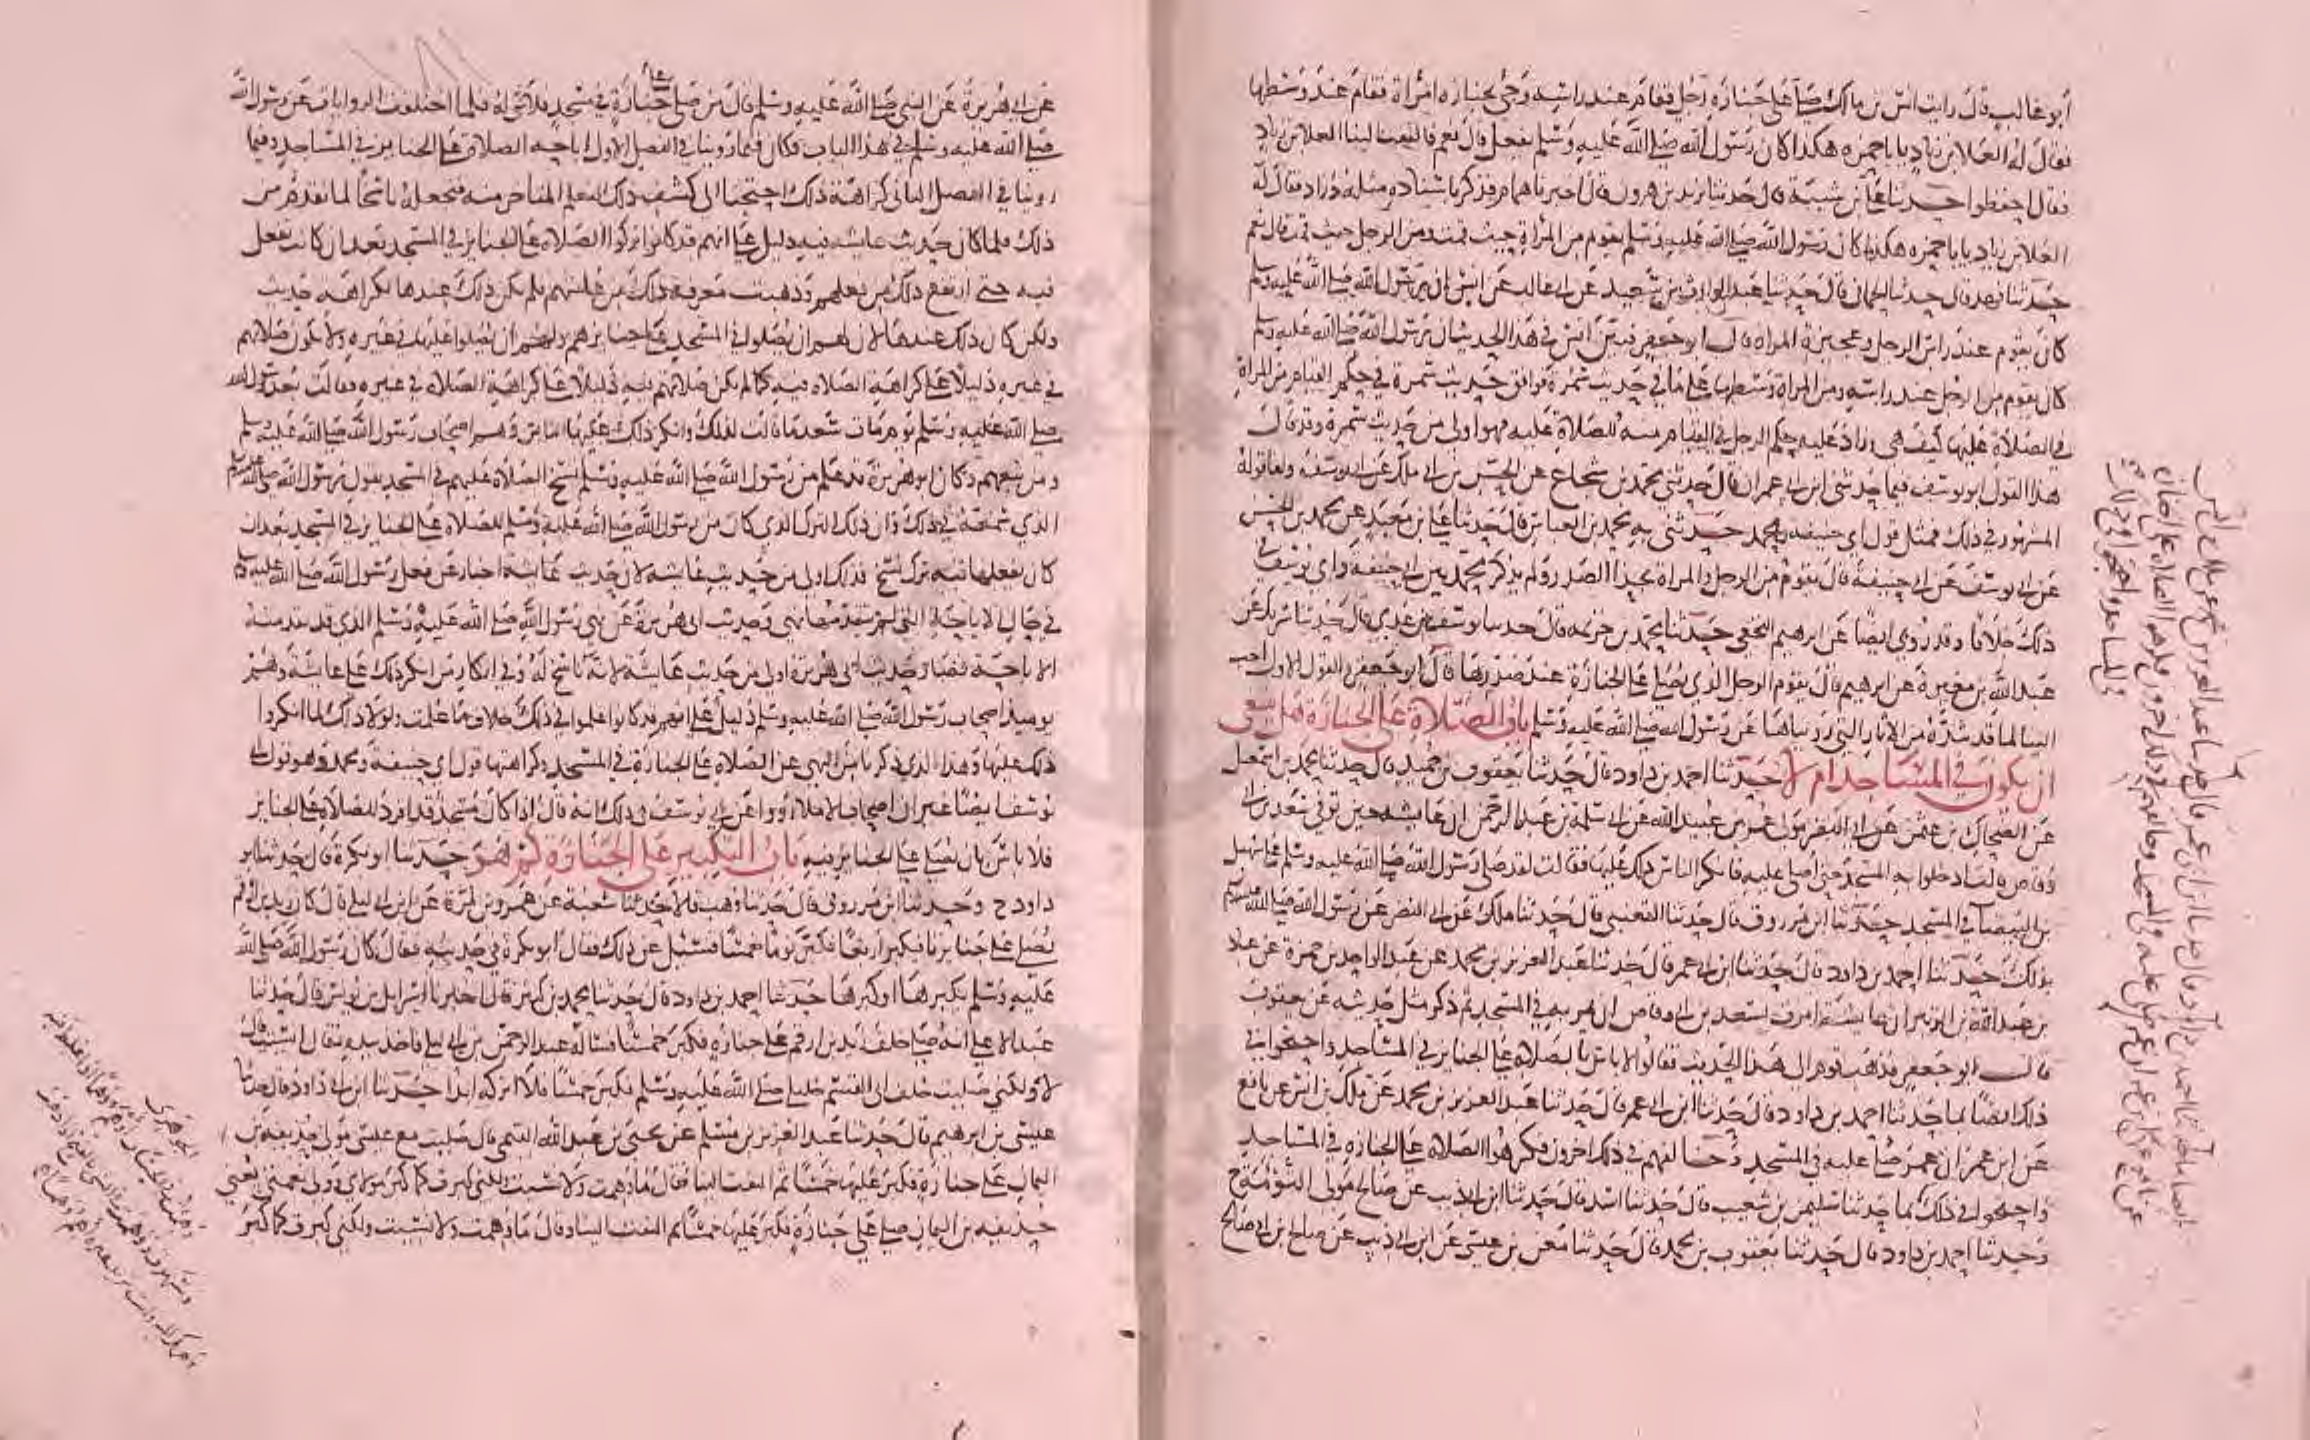 أبو غالب قال رأيت أنس بن مالك صلى على جنازة رجل فقام عند رأسه وجيء بجنازة امرأة فقام عند وسطها
فقال له العلاء بن زياد يا با حمزة هكذا كان رسول الله صلى الله عليه وسلم يفعل قال نعم فالتفت لينا العلاء بن زياد
فقال احفظوا حدثنا علي بن شيبة قال حدثنا يزيد بن هرون قال اخبرنا همام فذكر باسناده مثله وزاد فقال له
العلاء بن زياد يا با حمزة هكذا كان رسول الله صلى الله عليه وسلم يقوم من المرأة حيث قمت ومن الرجل حيث قمت قال نعم
حدثنا فهد قال حدثنا الحماني قال حدثنا عبد الوارث بن سعيد عن ابي غالب عن انس ان رسول الله صلى الله عليه وسلم
كان يقوم عند رأس الرجل وعجيزة المرأة قال ابو جعفر فبين انس في هذا الحديث ان رسول الله صلى الله عليه وسلم
كان يقوم من الرجل عند رأسه ومن المرأة وسطها على ما في حديث سمرة فوافق حديث سمرة في حكم القيام من المرأة
في الصلاة عليها كيف هي وزاد عليه حكم الرجل في القيام منه للصلاة عليه فهو اولى من حديث سمرة وقد قال
هذا القول ابو يوسف فيما حدثني ابن ابي عمران قال حدثني محمد بن شجاع عن الحسن بن ابي ملك عن ابي يوسف واما قوله
المشهور في ذلك فمثل قول ابي حنيفة ومحمد حدثني به محمد بن العباس قال حدثنا علي بن معبد عن محمد بن الحسن
عن ابي يوسف عن ابي حنيفة قال يقوم من الرجل والمرأة بحذاء الصدر ولم يذكر محمد بين ابي حنيفة وابي يوسف في
ذلك خلافا وقد روي ايضا عن ابرهيم النخعي حدثنا محمد بن خزيمة قال حدثنا يوسف بن عدي قال حدثنا شريك عن
عبد الله بن مغيرة عن ابرهيم قال يقوم الرجل الذي يصلي على الجنازة عند صدرها قال ابو جعفر والقول الاول احب
الينا لما قد شده من الاثار التي رويناها عن رسول الله صلى الله عليه وسلم باب الصلاة على الجنازة هل ينبغي
ان يكون في المساجد ام لا حدثنا احمد بن داود قال حدثنا يعقوب بن حميد قال حدثنا محمد بن اسمعيل
عن الضحاك بن عثمن عن ابي النضر مولى عمر بن عبيد الله عن ابي سلمة بن عبد الرحمن ان عايشة حين توفي سعد بن ابي
وقاص قالت ادخلوا به المسجد حتى اصلي عليه فانكر الناس ذلك عليها فقالت لقد صلى رسول الله صلى الله عليه وسلم على سهيل
بن البيضاء في المسجد حدثنا ابن مرزوق قال حدثنا القعنبي قال حدثنا ملك عن ابي النضر عن رسول الله صلى الله عليه وسلم
بذلك حدثنا احمد بن داود قال حدثنا ابن ابي عمر قال حدثنا عبد العزيز بن محمد عن عبد الواحد بن حمزة عن عباد
بن عبد الله بن الزبير ان عايشة امرت بسعد بن ابي وقاص ان يمر به في المسجد ثم ذكر مثل حديثه عن يعقوب
قال ابو جعفر فذهب قوم الى هذا الحديث فقالوا لا باس بالصلاة على الجنايز في المساجد واحتجوا في
ذلك ايضا بما حدثنا احمد بن داود قال حدثنا ابن ابي عمر قال حدثنا عبد العزيز بن محمد عن ملك بن انس عن نافع
عن ابن عمر ان عمر صلي عليه في المسجد وخالفهم في ذلك اخرون فكرهوا الصلاة على الجنازة في المساجد
واحتجوا في ذلك بما حدثنا سليمن بن شعيب قال حدثنا اسد قال حدثنا ابن ابي ذيب عن صالح مولى التوءمة ح
وحدثنا احمد بن داود قال حدثنا يعقوب بن محمد قال حدثنا معن بن عيسى عن ابن ابي ذيب عن صالح بن ابي صالح
عن ابي هريرة عن النبي صلى الله عليه وسلم قال من صلى على جنازة في مسجد فلا شيء له فلما اختلفت الروايات عن رسول الله
صلى الله عليه وسلم في هذا الباب فكان فيما روينا في الفصل الاول اباحة الصلاة على الجنايز في المساجد وفيما
روينا في الفصل الثاني كراهة ذلك احتجنا الى كشف ذلك لنعلم المتاخر منه فنجعله ناسخا لما تقدم من
ذلك فلما كان حديث عايشة فيه دليل على انهم قد كانوا تركوا الصلاة على الجنايز في المسجد بعد ان كانت تفعل
فيه حتى ارتفع ذلك من فعلهم وذهبت معرفة ذلك من عامتهم فلم يكن ذلك عندها لكراهة حدثت
ولكن كان ذلك عندها لان لهم ان يصلوا في المسجد على جنايزهم ولهم ان يصلوا عليها في غيره ولا يكون صلاتهم
في غيره دليلا على كراهة الصلاة فيه كما لم يكن صلاتهم فيه دليلا على كراهة الصلاة في غيره فقالت بعد رسول الله
صلى الله عليه وسلم يوم مات سعد ما قالت لذلك وانكر ذلك عليها الناس وهم اصحاب رسول الله صلى الله عليه وسلم
ومن تبعهم وكان ابو هريرة قد علم من رسول الله صلى الله عليه وسلم نسخ الصلاة عليهم في المسجد بقول رسول الله صلى الله عليه وسلم
الذي سمعه في ذلك وان ذلك الترك الذي كان من رسول الله صلى الله عليه وسلم للصلاة على الجنايز في المسجد بعد ان
كان يفعلها فيه ترك نسخ فذلك اولى من حديث عايشة لان حديث عايشة اخبار عن فعل رسول الله صلى الله عليه وسلم
في حال الاباحة التي لم يتقدمها نهي وحديث ابي هريرة عن نهي رسول الله صلى الله عليه وسلم الذي قد تقدمته
الاباحة فصار حديث ابي هريرة اولى من حديث عايشة لانه ناسخ له وفي انكار من انكر ذلك على عايشة وهم
يوميذ اصحاب رسول الله صلى الله عليه وسلم دليل على انهم قد كانوا علموا في ذلك خلاف ما علمت ولولا ذلك لما انكروا
ذلك عليها وهذا الذي ذكرنا من النهي عن الصلاة على الجنازة في المسجد وكراهتها قول ابي حنيفة ومحمد وهو قول ابي
يوسف ايضا غير ان اصحاب الاملاء رووا عن ابي يوسف في ذلك انه قال اذا كان مسجد قد افرد للصلاة على الجنايز
فلا باس بان يصلى على الجنايز فيه باب التكبير على الجنازة كم هو حدثنا ابو بكرة قال حدثنا ابو
داود ح وحدثنا ابن مرزوق قال حدثنا وهب قالا حدثنا شعبة عن عمرو بن مرة عن ابن ابي ليلى قال كان زيد بن ارقم
يصلي على جنايزنا فيكبر اربعا فكبر يوما خمسا فسئل عن ذلك فقال ابو بكرة في حديثه فقال كان رسول الله صلى الله
عليه وسلم يكبرها او كبرها حدثنا احمد بن داود قال حدثنا محمد بن كثير قال اخبرنا اسرائل بن يونس قال حدثنا
عبد الاعلى انه صلى خلف زيد بن ارقم على جنازة فكبر خمسا فساله عبد الرحمن بن ابي ليلى فاخذ بيده فقال انسيت قال
لا ولكني صليت خلف ابي القسم خليلي صلى الله عليه وسلم فكبر خمسا فلا اتركه ابدا حدثنا ابن ابي داود قال حدثنا
عيسى بن ابرهيم قال حدثنا عبد العزيز بن مسلم عن يحيى بن عبد الله التيمي قال صليت مع عيسى مولى حذيفة بن
اليمان على جنازة فكبر عليها خمسا ثم التفت الينا فقال ما وهمت ولا نسيت ولكني كبرت كما كبر مولاي وولي نعمتي يعني
حذيفة بن اليمان صلى على جنازة فكبر عليها خمسا ثم التفت الينا وقال ما وهمت ولا نسيت ولكني كبرت كما كبر